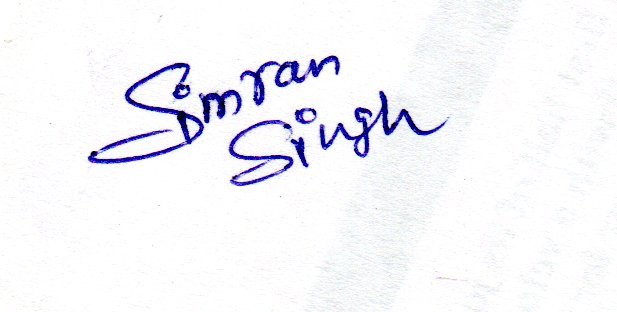 Simran
Singh